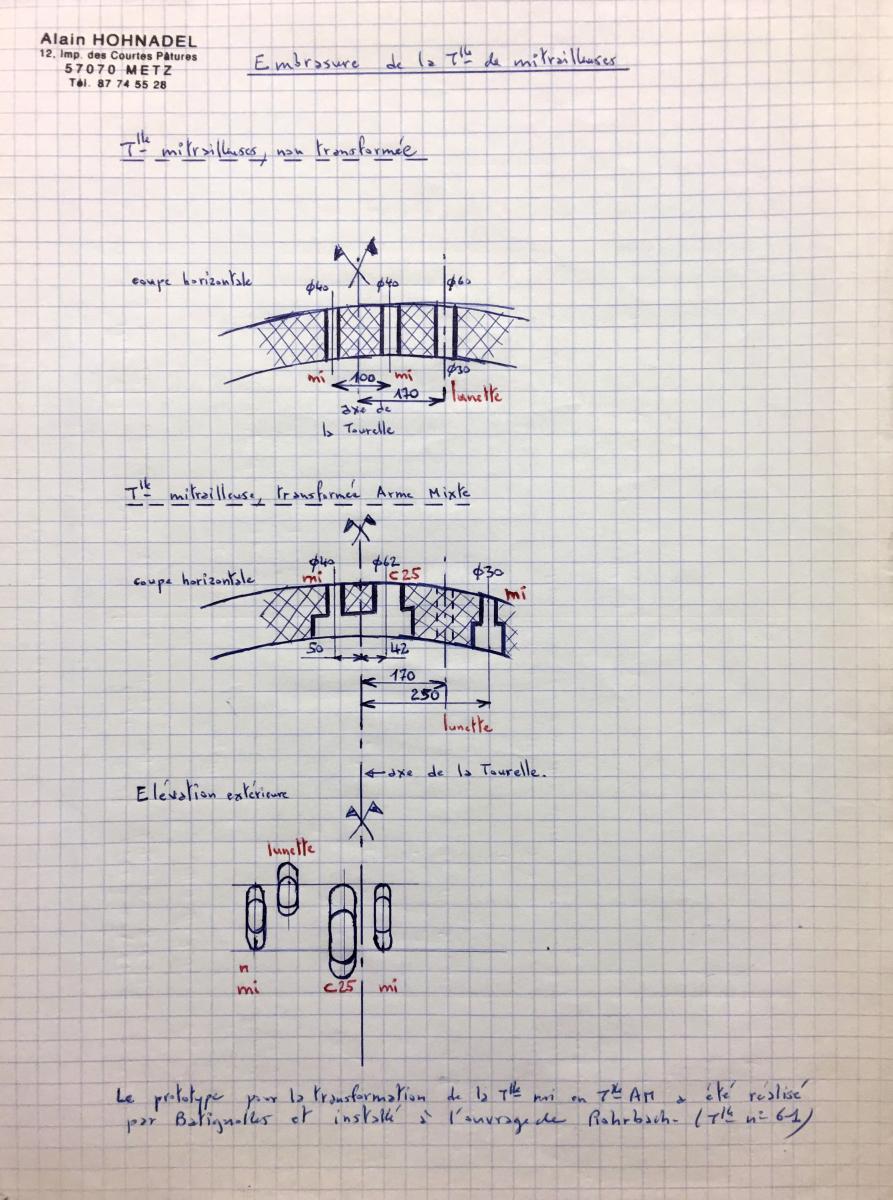 Alain HOHNADEL
12, Imp. des Courtes Pâtures
57070 METZ
Tél. 87 74 55 28
Embrasure de la Tlle de mitrailleuses
Tlle mitrailleuses, non transformée
coupe horizontale
ϕ40 ϕ40 ϕ60
ϕ30
mi 100 mi
170 lunette
axe de
la Tourelle
Tlle mitrailleuse, transformée Arme Mixte
coupe horizontale
ϕ40 ϕ62 ϕ30
mi C25 mi
50 42
170
250
lunette
axe de la Tourelle.
Elévation extérieure
lunette
n
mi C25 mi
Le prototype pour la transformation de la Tlle mi en Tlle AM a été réalisé
par Batignolles et installé à l'ouvrage de Rohrbach. (Tlle n° 61)